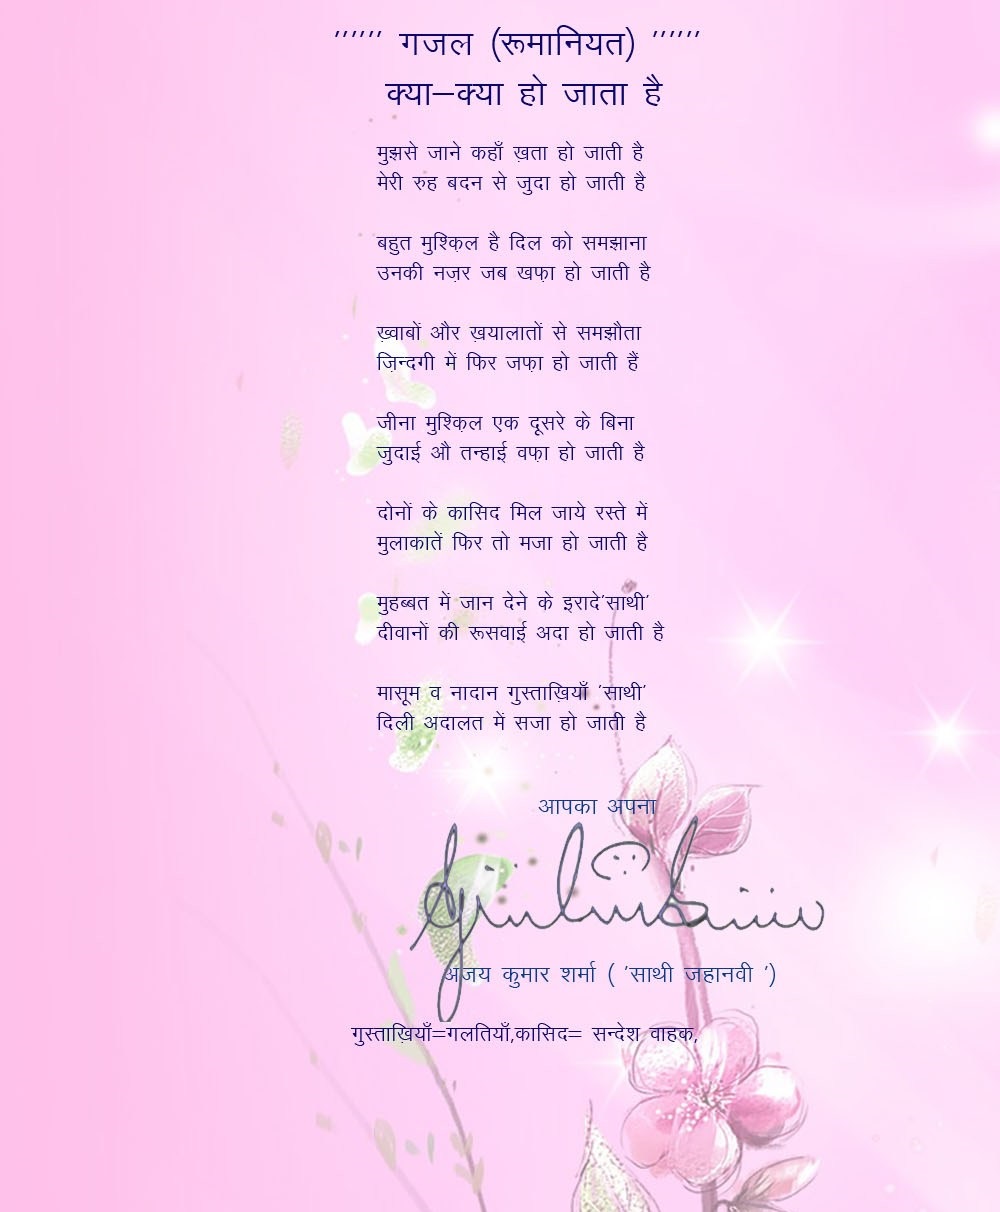 '''''' गजल (रूमानियत) ''''''
क्या–क्या हो जाता है
मुझसे जाने कहाँ ख़ता हो जाती है
मेरी रुह बदन से जुदा हो जाती है
बहुत मुश्क़िल है दिल को समझाना
उनकी नज़र जब खफ़ा हो जाती है
ख़्वाबों और ख़यालातों से समझौता
ज़िन्दगी में फिर जफ़ा हो जाती हैं
जीना मुश्क़िल एक दूसरे के बिना
जुदाई औ तन्हाई वफ़ा हो जाती है
दोनों के कासिद मिल जाये रस्ते में
मुलाकातें फिर तो मजा हो जाती है
मुहब्बत में जान देने के इरादे'साथी'
दीवानों की रूसवाई अदा हो जाती है
मासूम व नादान गुस्ताख़ियाँ 'साथी'
दिली अदालत में सजा हो जाती है
आपका अपना
अजय कुमार शर्मा ( 'साथी जहानवी ')
गुस्ताख़ियाँ=गलतियाँ,कासिद= सन्देश वाहक,